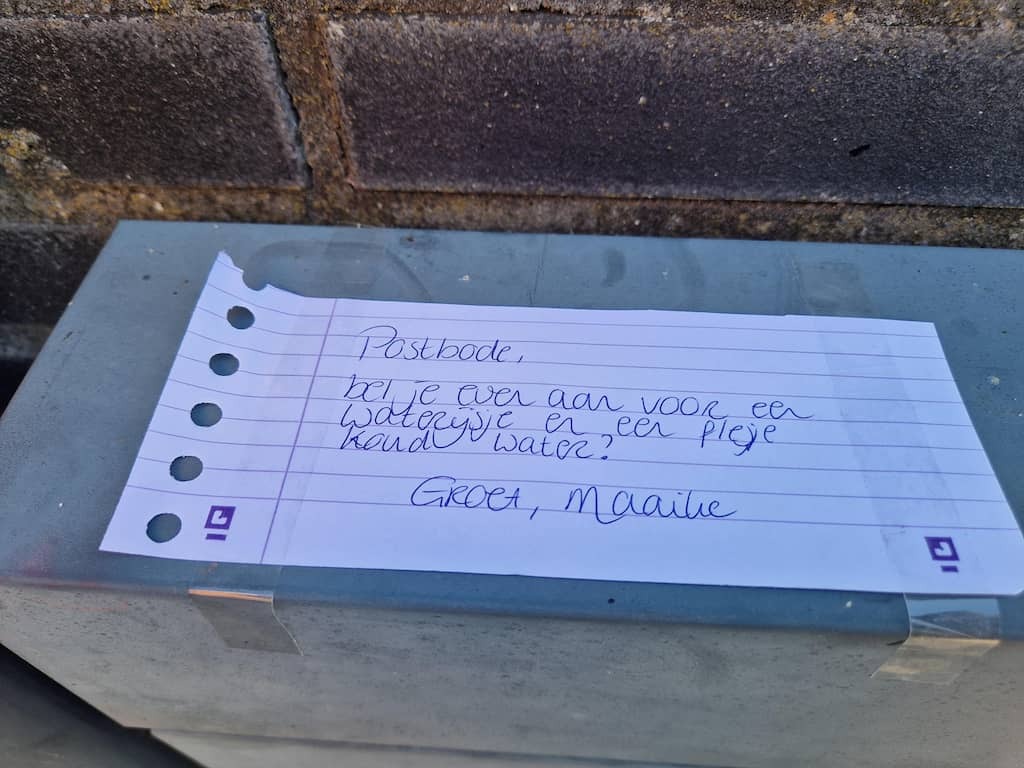 Postbode,
bel je even aan voor een
waterijsje en een plejje
koud water?
Groet, Maaike